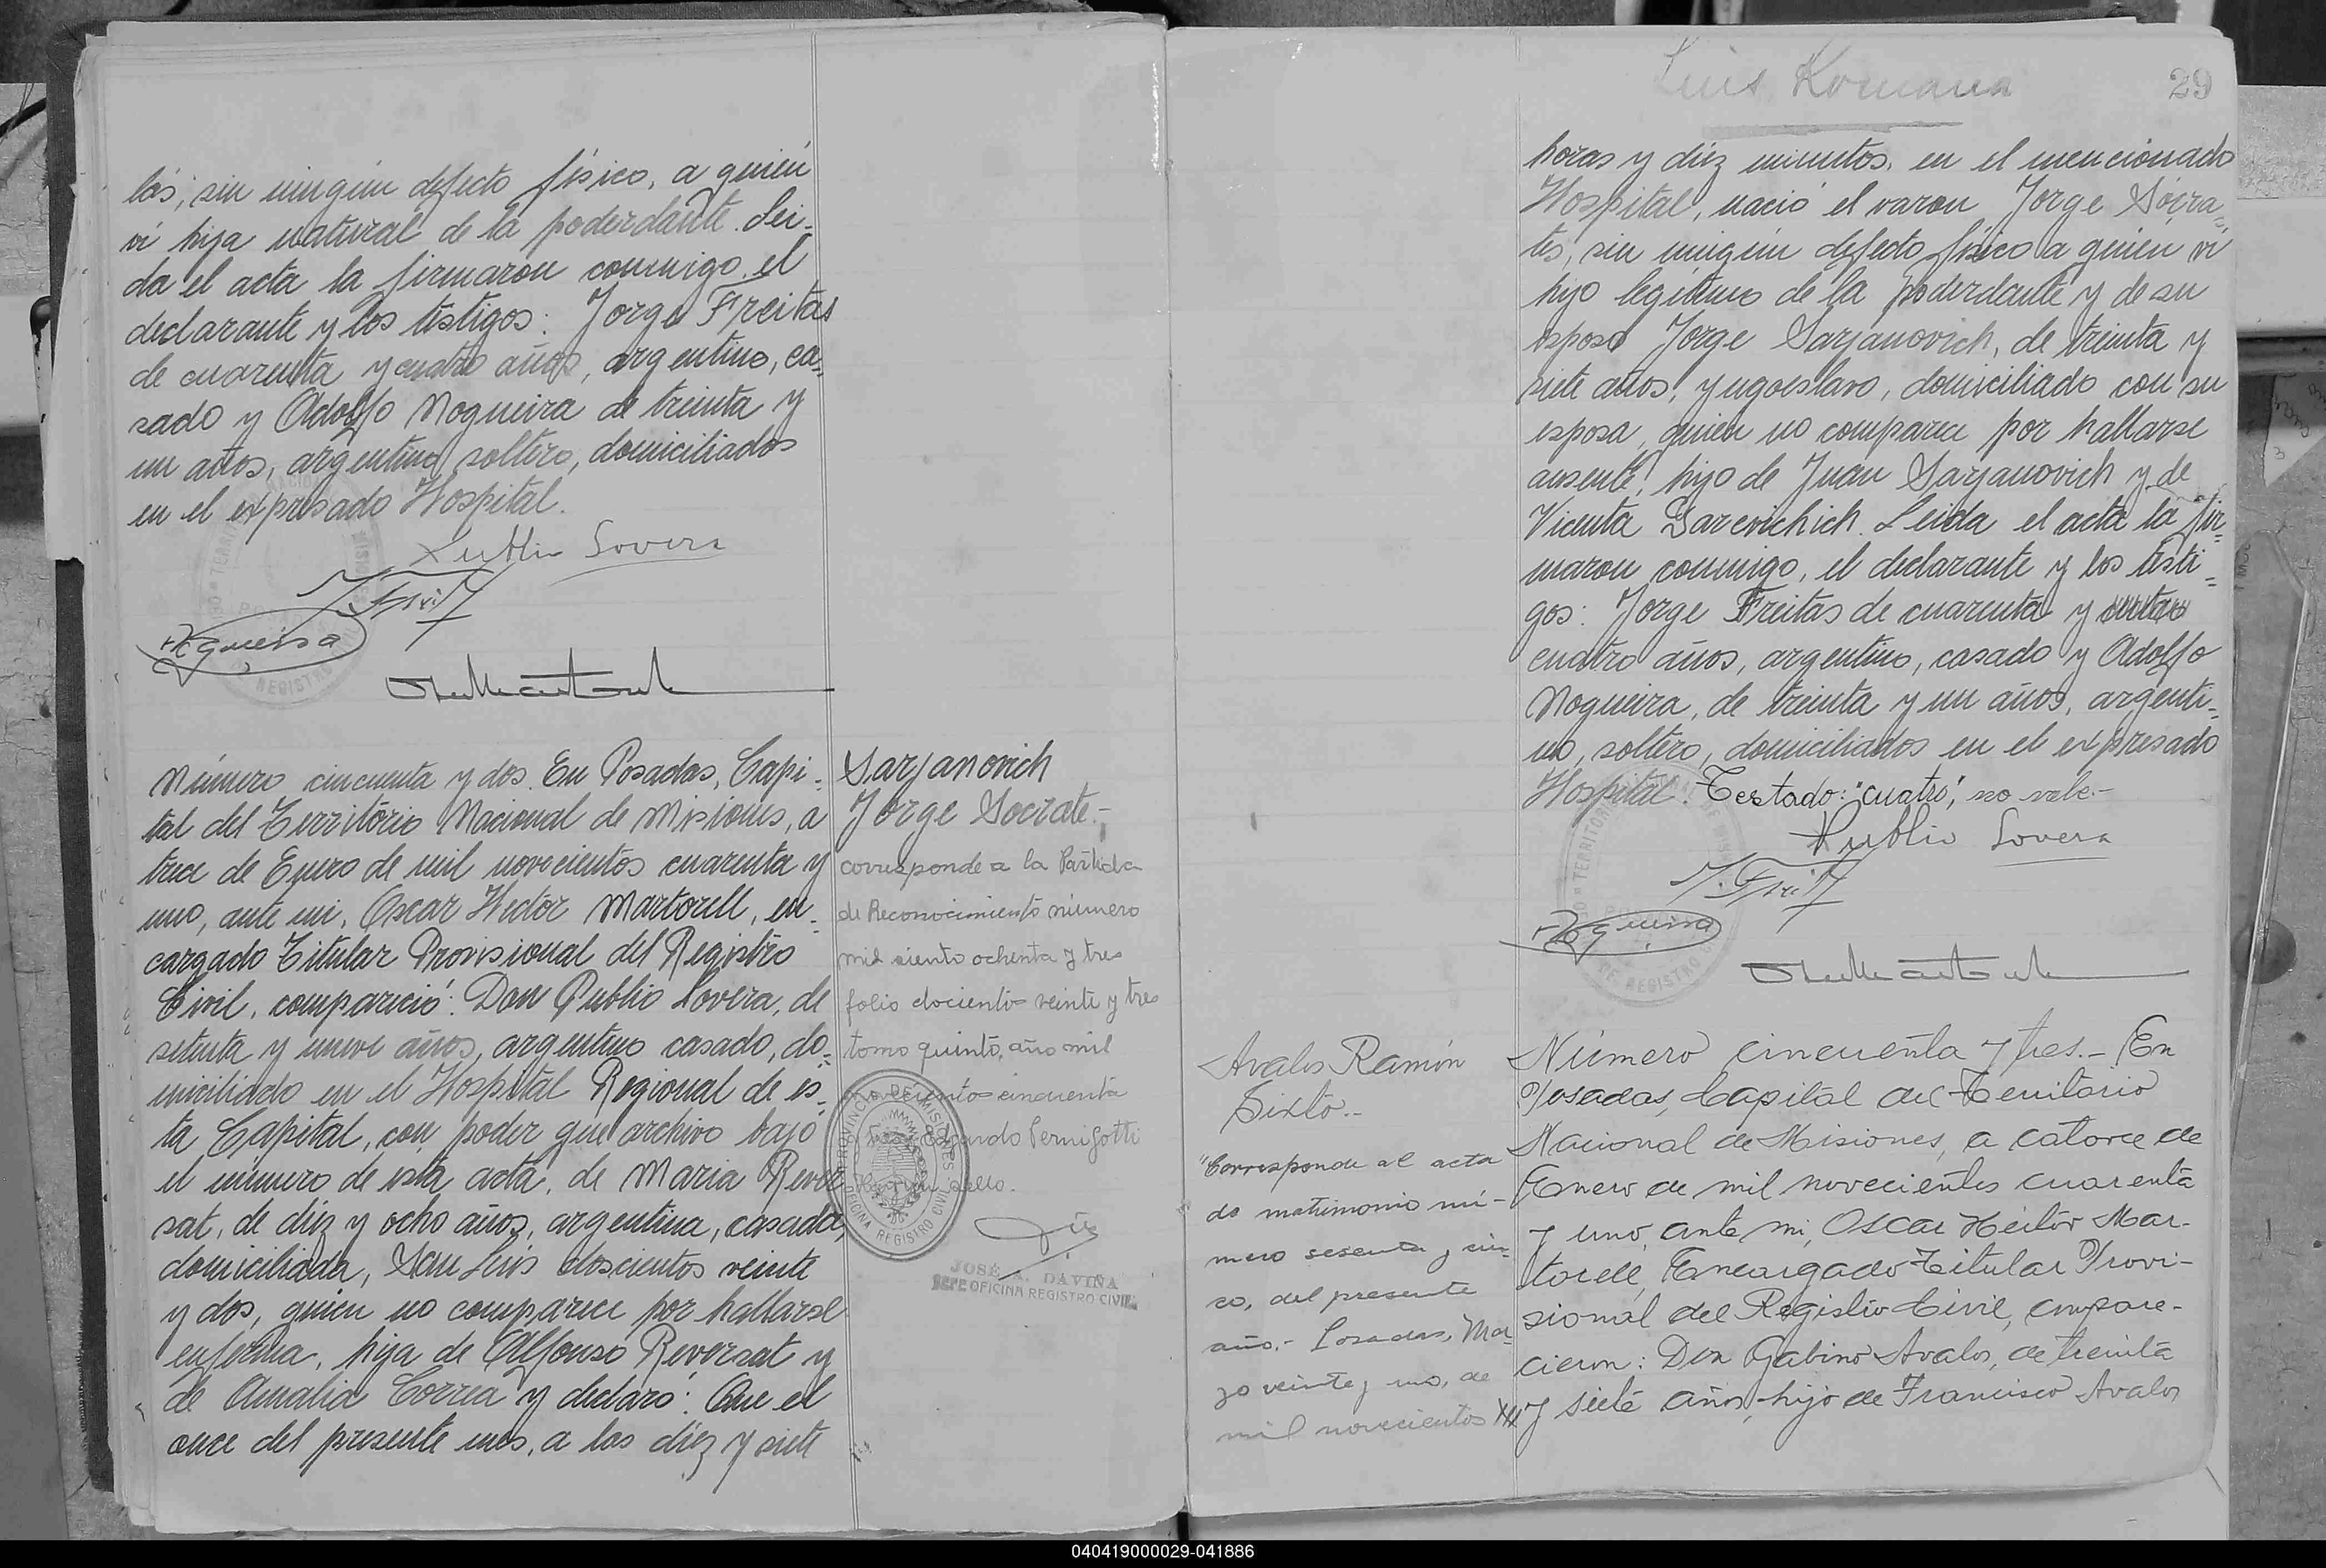 los, sin ningún defecto físico, a quién
ví hija natural de la poderdante. Lei-
da el acta la firmaron conmigo el
declarante y los testigos: Jorge Freitas
de cuarenta y cuatro años, argentino, ca-
sado y Adolfo Nogueira de treinta y
un años, argentino, soltero, domiciliados
en el expresado Hospital.
Publio Lovera
Número cincuenta y dos. En Posadas, Capi-
tal del Territorio Nacional de Misiones, a
trece de Enero de mil novecientos cuarenta y
uno, ante mi, Oscar Hector Martorell, en-
cargado Titular Provisional del Registro
Civil, compareció: Don Publio Lovera, de
setenta y nueve años, argentino casado, do-
miciliado en el Hospital Regional de es-
ta Capital, con poder que archivo bajo
el número de esta acta, de Maria Rever
sat, de diez y ocho años, argentina, casada,
domiciliada, San Luis doscientos veinte
y dos, quien no comparece por hallarse
enferma, hija de Alfonso Reversat y
de Amalia Correa y declaró: Que el
once del presente mes, a las diez y siete
Sarjanovich
Jorge Socrate.-
corresponde a la Partida
de Reconocimiento número
mil siento ochenta y tres
folio dociento veinte y tres
tomo quinto, año mil
noveciento cincuenta
Pernigotti
sello.
PROVINCIA DE MISIONES
OFICINA REGISTRO CIVIL
JOSÉ A. DAVIÑA
JEFE OFICINA REGISTRO CIVIL
Luis Romana
29
horas y diez minutos, en el mencionado
Hospital, nació el varon Jorge Sócra-
tes, sin ningún defecto físico a quien ví
hijo legitimo de la poderdante y de su
esposo Jorge Sarjanovich, de treinta y
siete años, yugoeslavo, domiciliado con su
esposa, quien no comparece por hallarse
ausente, hijo de Juan Sarjanovich y de
Vicenta Darevichich. Leida el acta la fir-
maron conmigo, el declarante y los testi-
gos: Jorge Freitas de cuarenta y
cuatro años, argentino, casado y Adolfo
Nogueira, de treinta y un años, argenti-
no, soltero, domiciliados en el expresado
Hospital. Testado: "cuatro", no vale.-
Publio Lovera
Avalos Ramón
Sixto.-
"Corresponde al acta
de matrimonio nú-
mero sesenta y cin-
co, del presente
año.- Posadas, Mar-
zo veinte y uno, de
mil novecientos XLI
Número cincuenta y tres.- En
Posadas, Capital del Territorio
Nacional de Misiones, a catorce de
Enero de mil novecientos cuarenta
y uno, ante mi, Oscar Héctor Mar-
torell, Encargado Titular Provi-
sional del Registro Civil, compare-
cieron: Don Gabino Avalos, de treinta
y siete años, hijo de Francisco Avalos
040419000029-041886